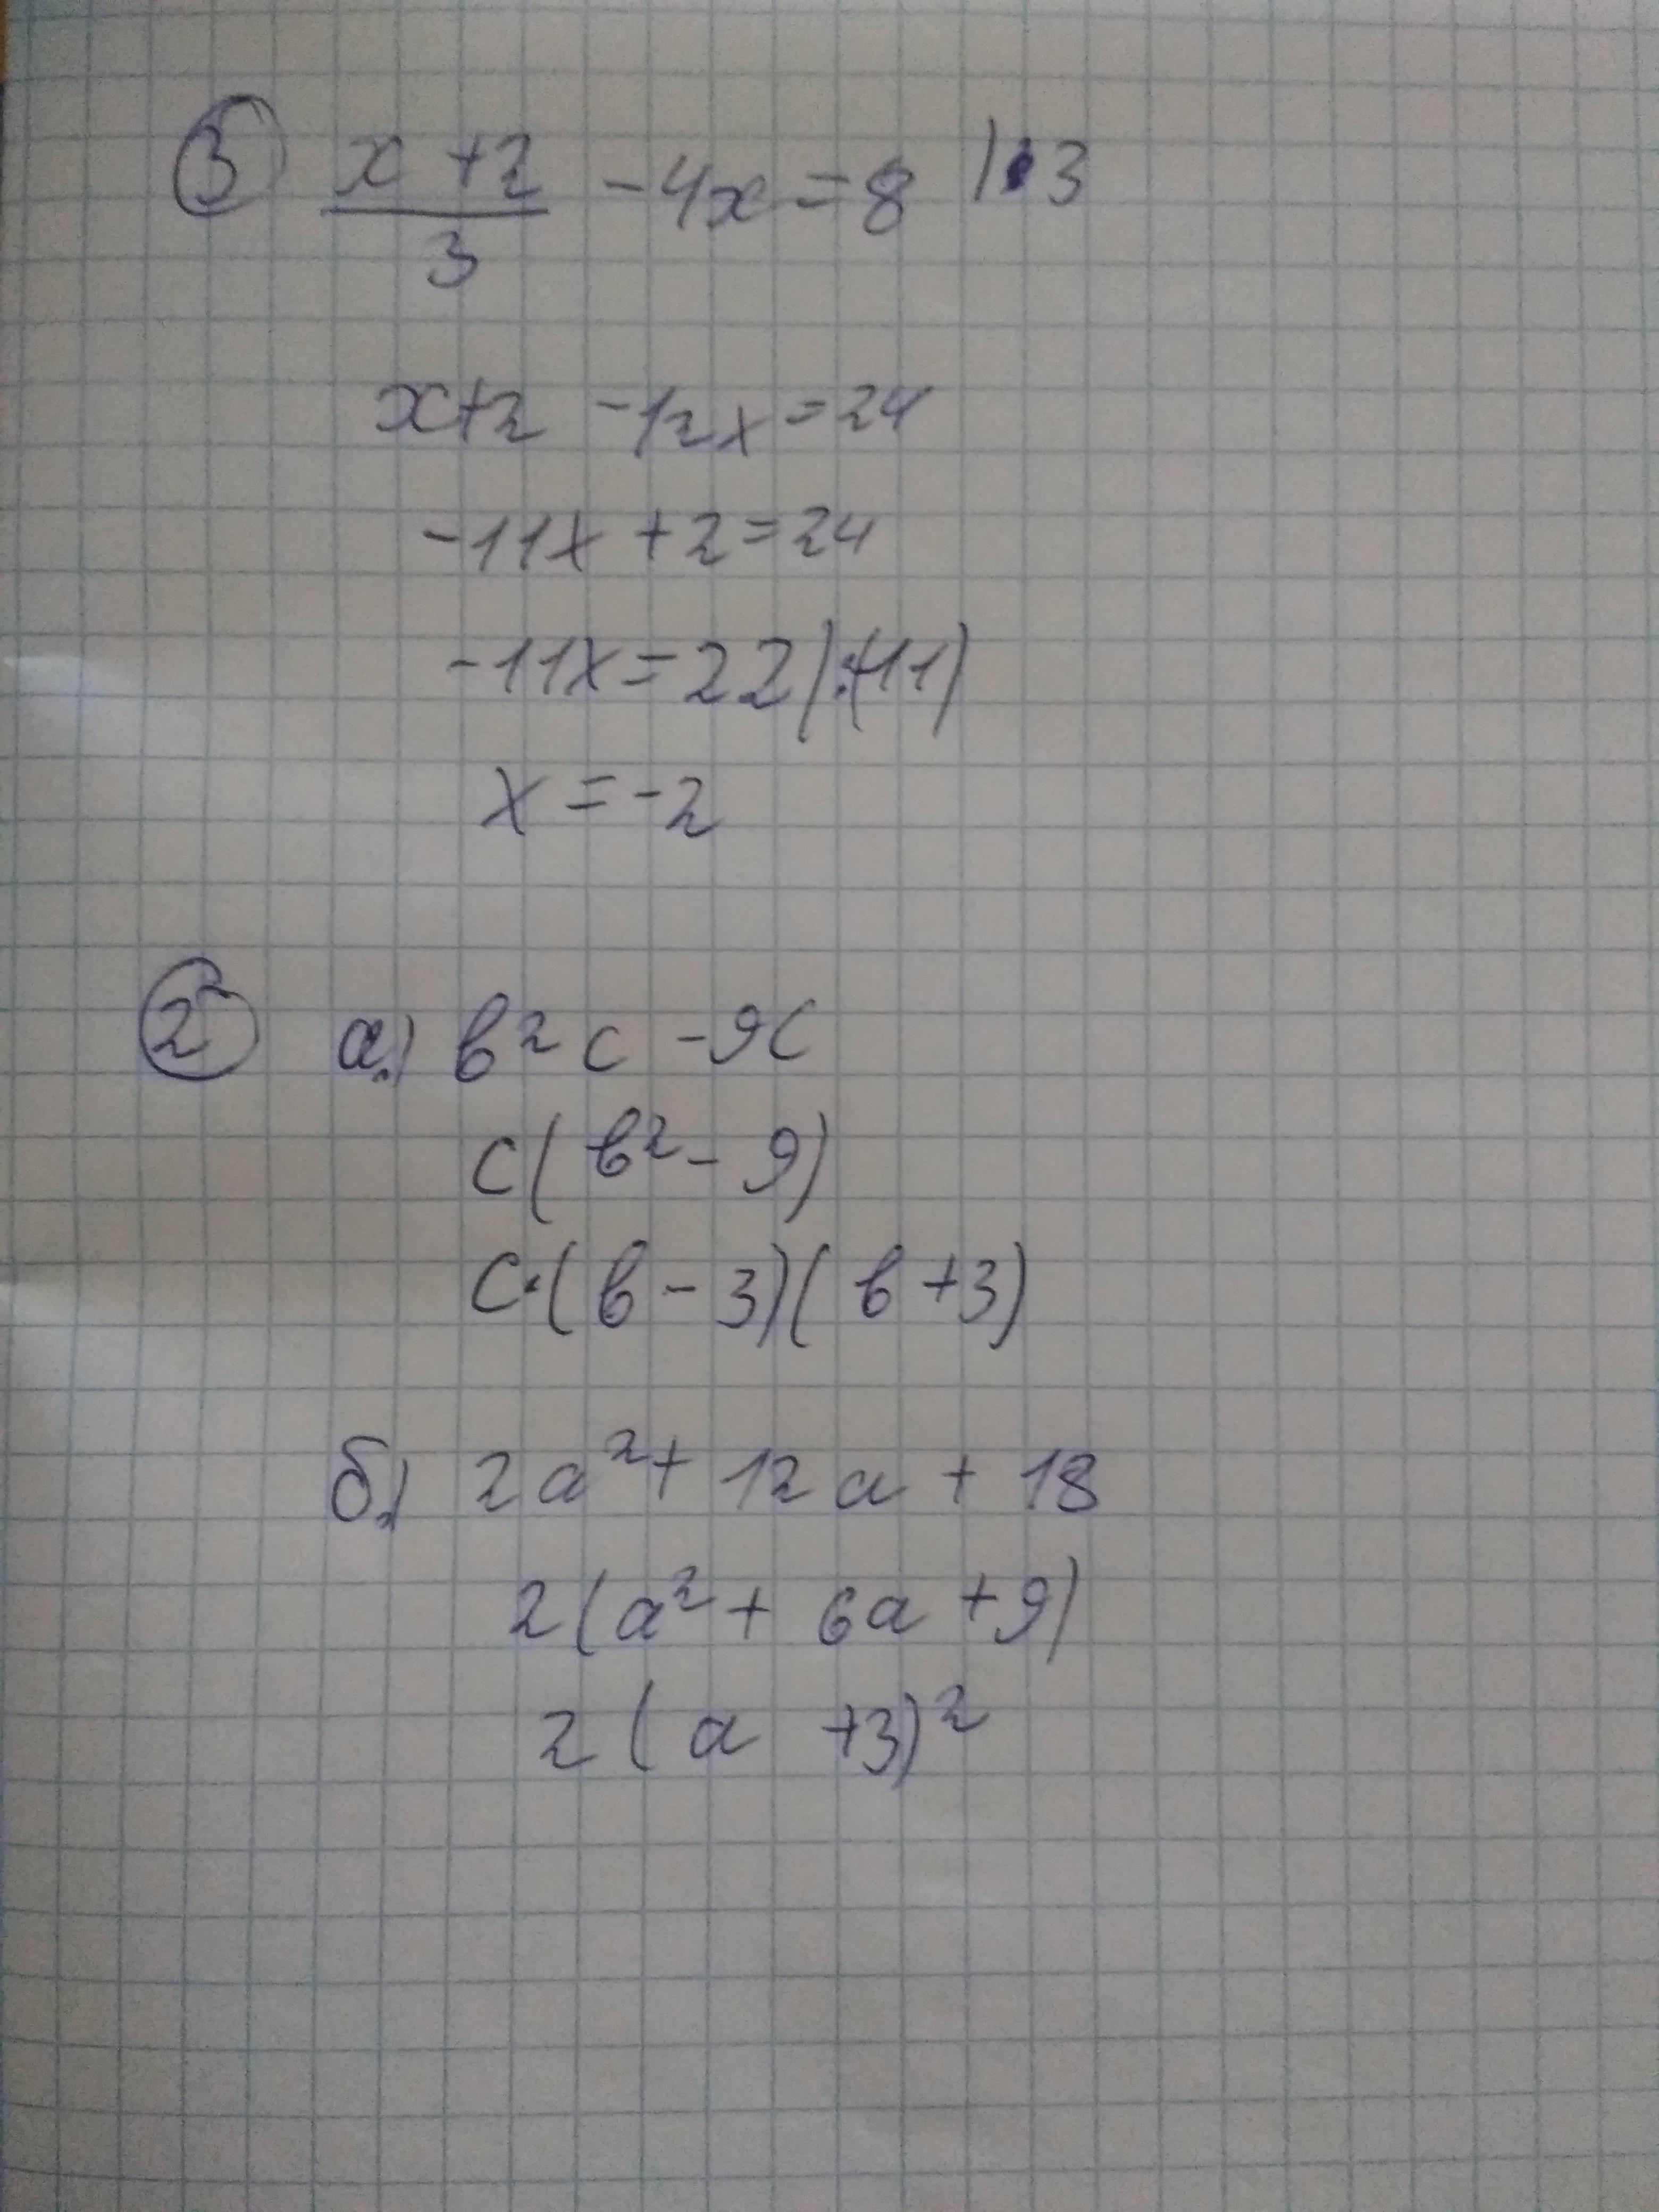 3 (x+2)/3 -4x=8 |·3
x+2 -12x=24
-11x+2=24
-11x=22|:(-11)
x=-2
2 а.) в²с-9с
с(в²-9)
с·(в-3)(в+3)
б.) 2а²+12а+18
2(а²+6а+9)
2(а+3)²